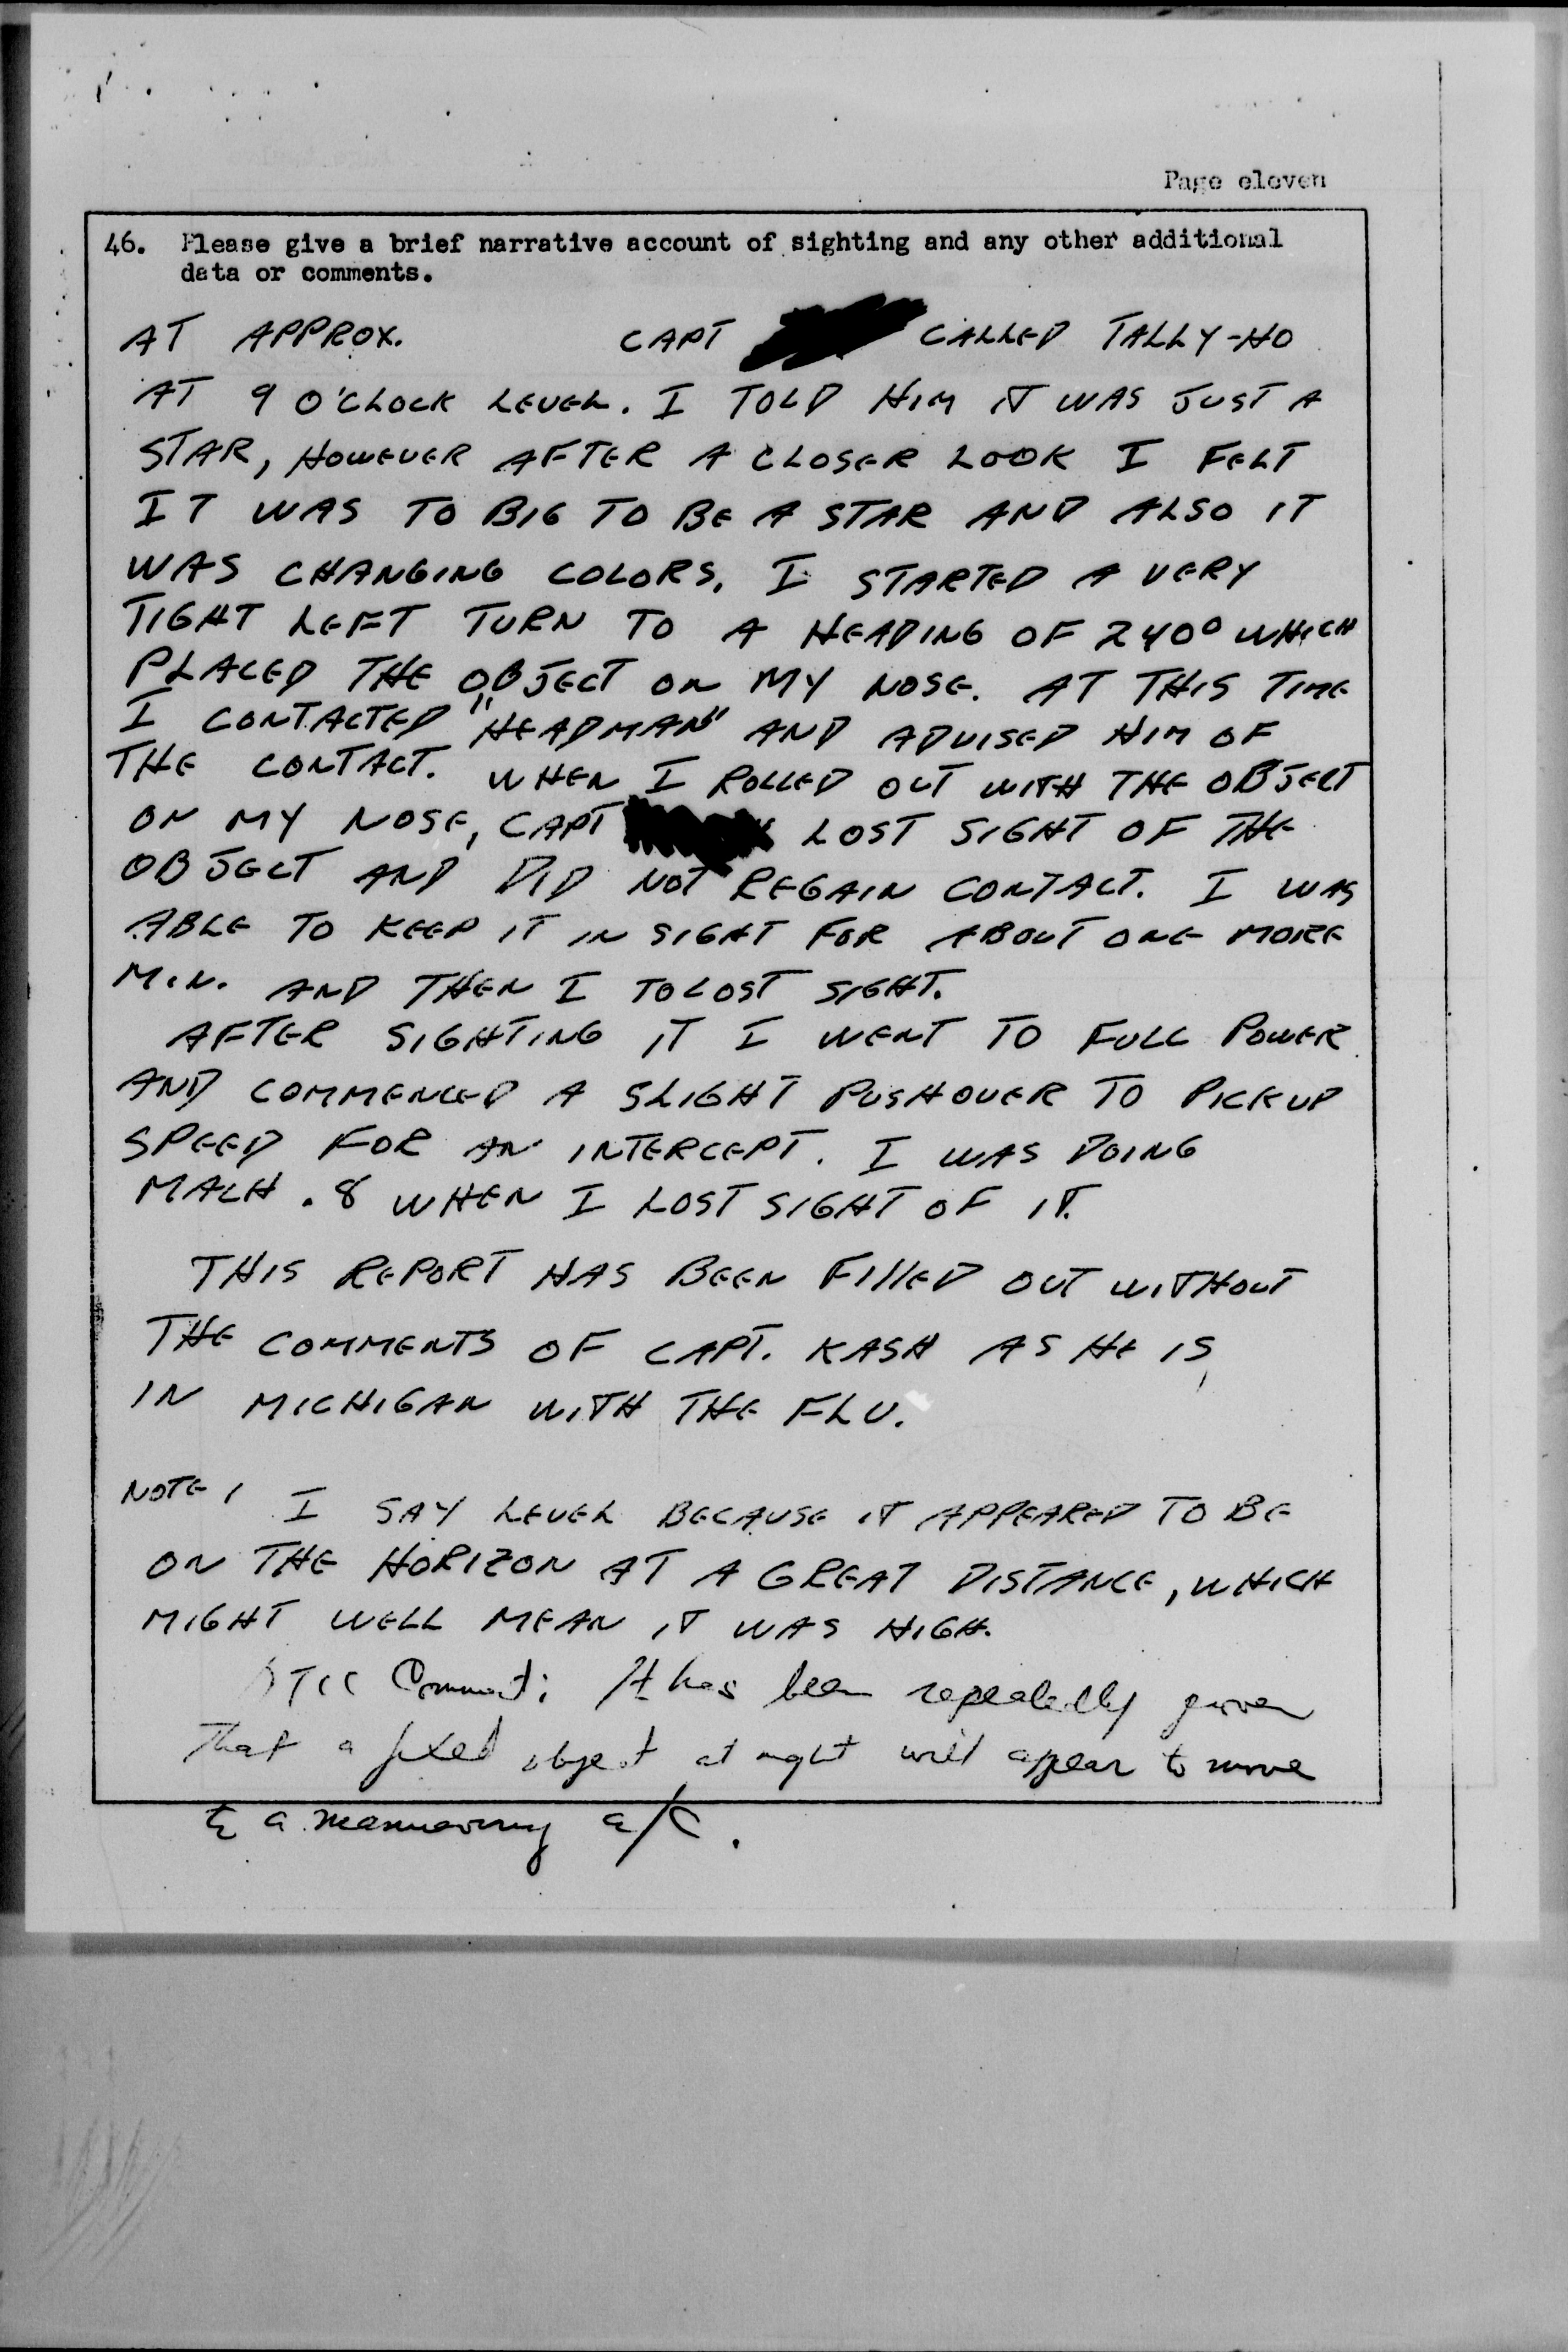 Page eleven
46. Please give a brief narrative account of sighting and any other additional
data or comments.
AT APPROX. CAPT CALLED TALLY-HO
AT 9 O'CLOCK LEVEL. I TOLD HIM IT WAS JUST A
STAR, HOWEVER AFTER A CLOSER LOOK I FELT
IT WAS TO BIG TO BE A STAR AND ALSO IT
WAS CHANGING COLORS. I STARTED A VERY
TIGHT LEFT TURN TO A HEADING OF 240° WHICH
PLACED THE OBJECT ON MY NOSE. AT THIS TIME
I CONTACTED "HEADMAN" AND ADVISED HIM OF
THE CONTACT. WHEN I ROLLED OUT WITH THE OBJECT
ON MY NOSE, CAPT LOST SIGHT OF THE
OBJECT AND DID NOT REGAIN CONTACT. I WAS
ABLE TO KEEP IT IN SIGHT FOR ABOUT ONE MORE
MIN. AND THEN I TO LOST SIGHT.
AFTER SIGHTING IT I WENT TO FULL POWER
AND COMMENCED A SLIGHT PUSHOVER TO PICKUP
SPEED FOR AN INTERCEPT. I WAS DOING
MACH .8 WHEN I LOST SIGHT OF IT.
THIS REPORT HAS BEEN FIllED OUT WITHOUT
THE COMMENTS OF CAPT. KASH AS HE IS
IN MICHIGAN WITH THE FLU.
NOTE, I SAY LEVEL BECAUSE IT APPEARED TO BE
ON THE HORIZON AT A GREAT DISTANCE, WHICH
MIGHT WELL MEAN IT WAS HIGH.
Comment: It has been repeatedly proven
That a fixed object at night will appear to move
to a maneuvering a/c.